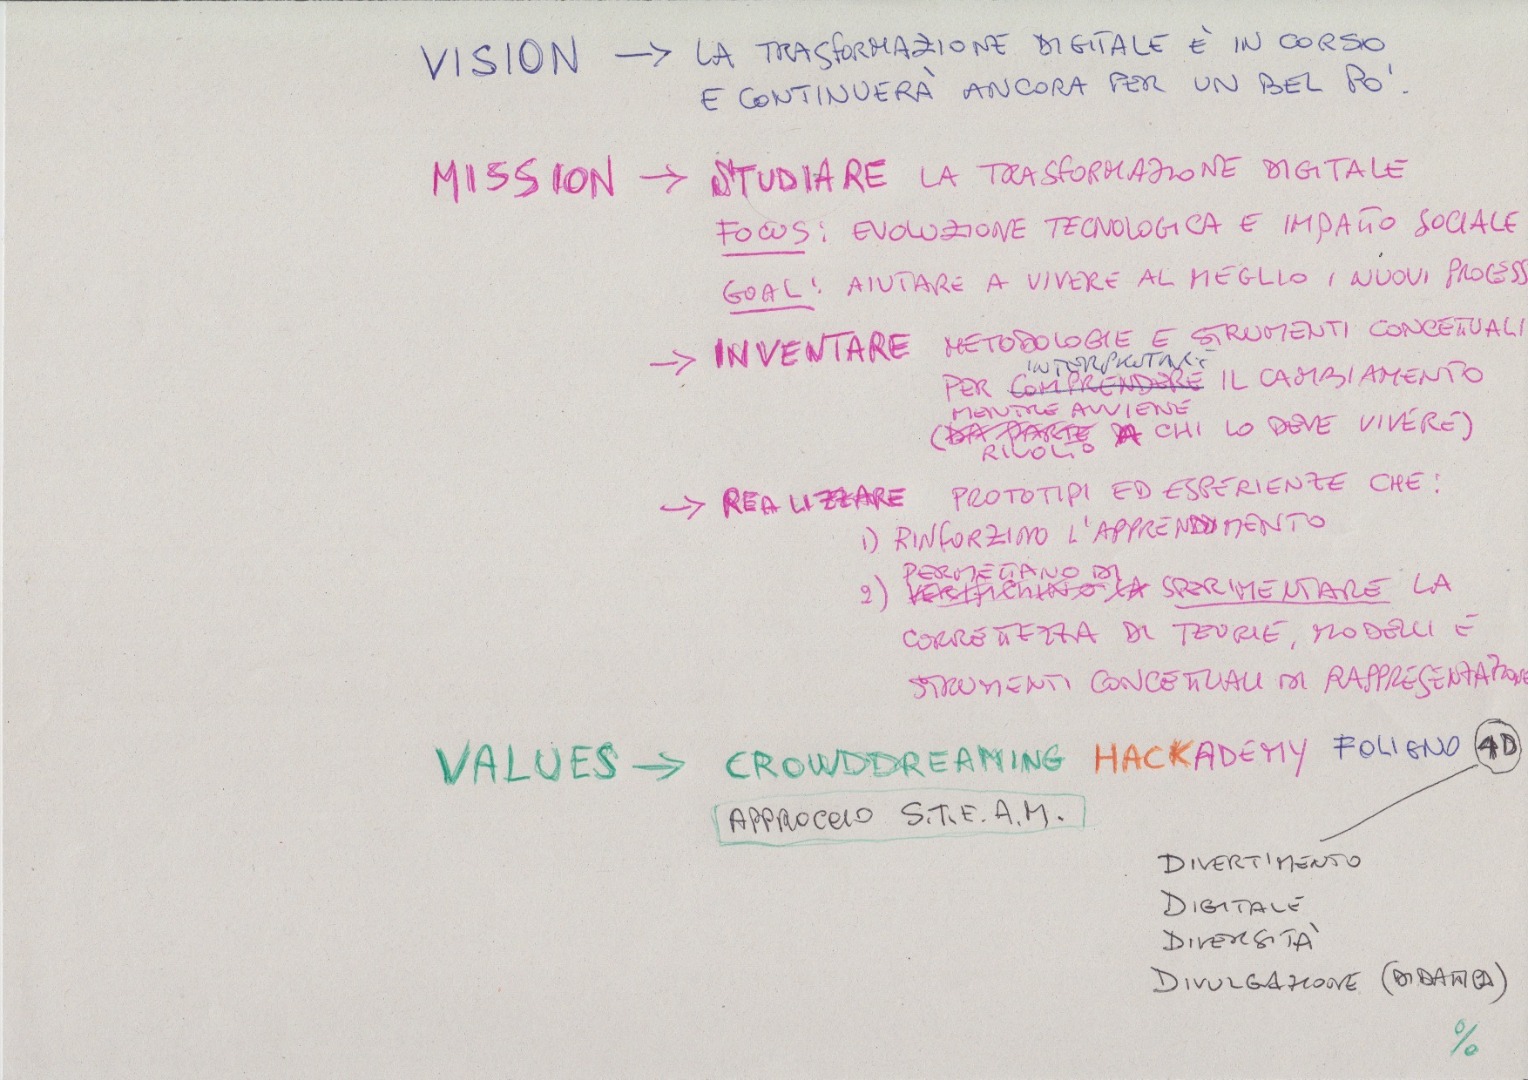 VISION → LA TRASFORMAZIONE DIGITALE È IN CORSO
E CONTINUERÀ ANCORA PER UN BEL PO'.
MISSION → STUDIARE LA TRASFORMAZIONE DIGITALE
FOCUS: EVOLUZIONE TECNOLOGICA E IMPATTO SOCIALE
GOAL: AIUTARE A VIVERE AL MEGLIO I NUOVI PROCESS
→ INVENTARE METODOLOGIE E STRUMENTI CONCETTUALI
INTERPRETARE
PER COMPRENDERE IL CAMBIAMENTO
MENTRE AVVIENE
(DA PARTE DI CHI LO DEVE VIVERE)
RIVOLTO
→ REALIZZARE PROTOTIPI ED ESPERIENZE CHE:
1) RINFORZINO L'APPRENDIMENTO
PERMETTANO DI
2) VERIFICHINO LA SPERIMENTARE LA
CORRETTEZZA DI TEORIE, MODELLI E
STRUMENTI CONCETTUALI DI RAPPRESENTAZIONE
VALUES → CROWDDREAMING HACKADEMY FOLIGNO 4D
APPROCCIO S.T.E.A.M.
DIVERTIMENTO
DIGITALE
DIVERSITÀ
DIVULGAZIONE (DIDATTICA)
%